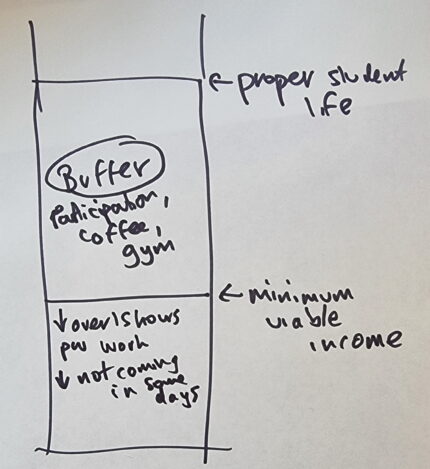 proper student
life
Buffer
Participation,
coffee,
gym
minimum
viable
income
↓ over 15hours
pw work
↓ not coming
in some
days